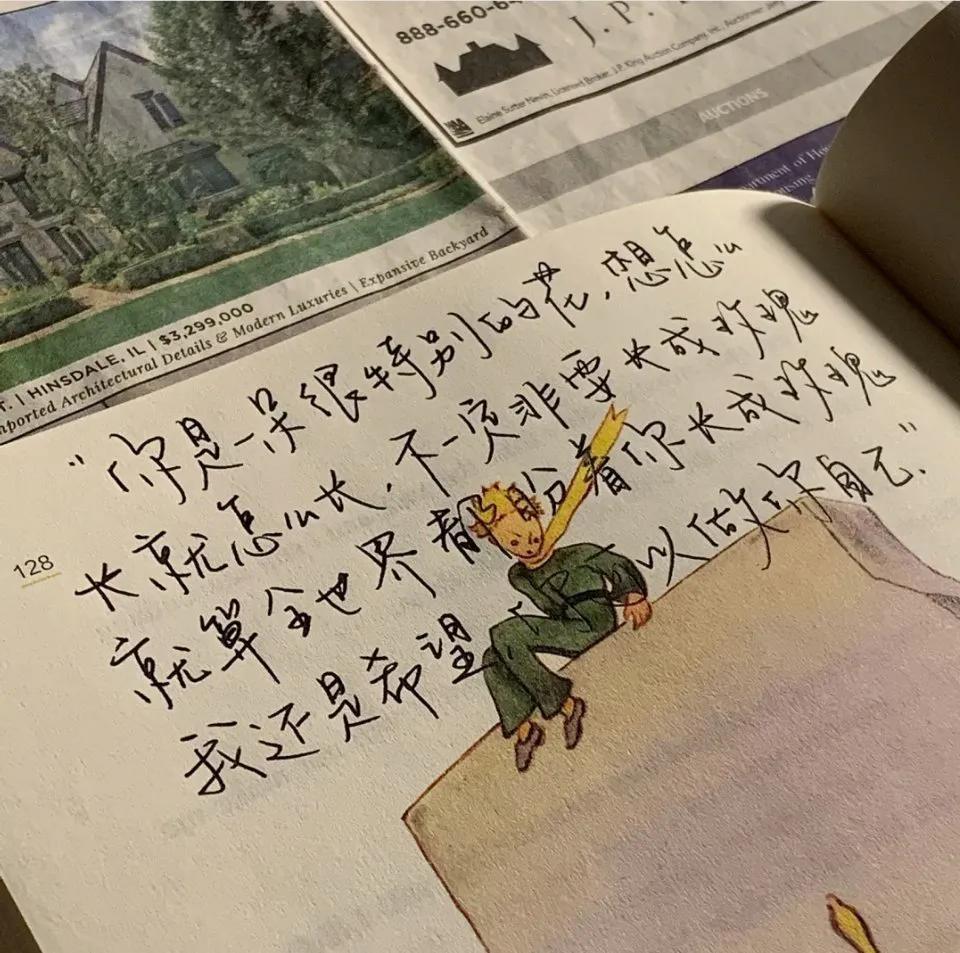 888-660-6
J. P.
Licensed Broker, J.P. King Auction Company, Inc., Auctioneer,
AUCTIONS
T. | HINSDALE, IL | $3,299,000
mported Architectural Details & Modern Luxuries | Expansive Backyard
"你是一朵很特别的花,想怎么
长就怎么长,不一定非要长成玫瑰
就算全世界都盼着你长成玫瑰
我还是希望你可以做你自己."
128